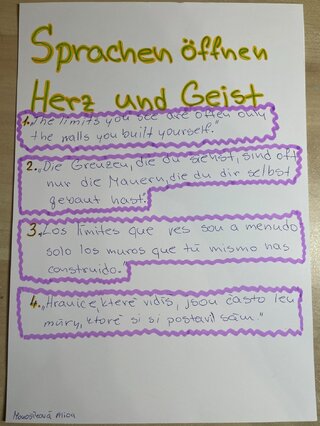 Sprachen öffnen
Herz und Geist
1. „The limits you see are often only
the walls you built yourself."
2. „Die Grenzen, die du siehst, sind oft
nur die Mauern, die du dir selbst
gebaut hast."
3. „Los límites que ves son a menudo
solo los muros que tú mismo has
construido."
4. „Hranice, které vidíš, jsou často jen
múry, které si si postavil sám"
Mia